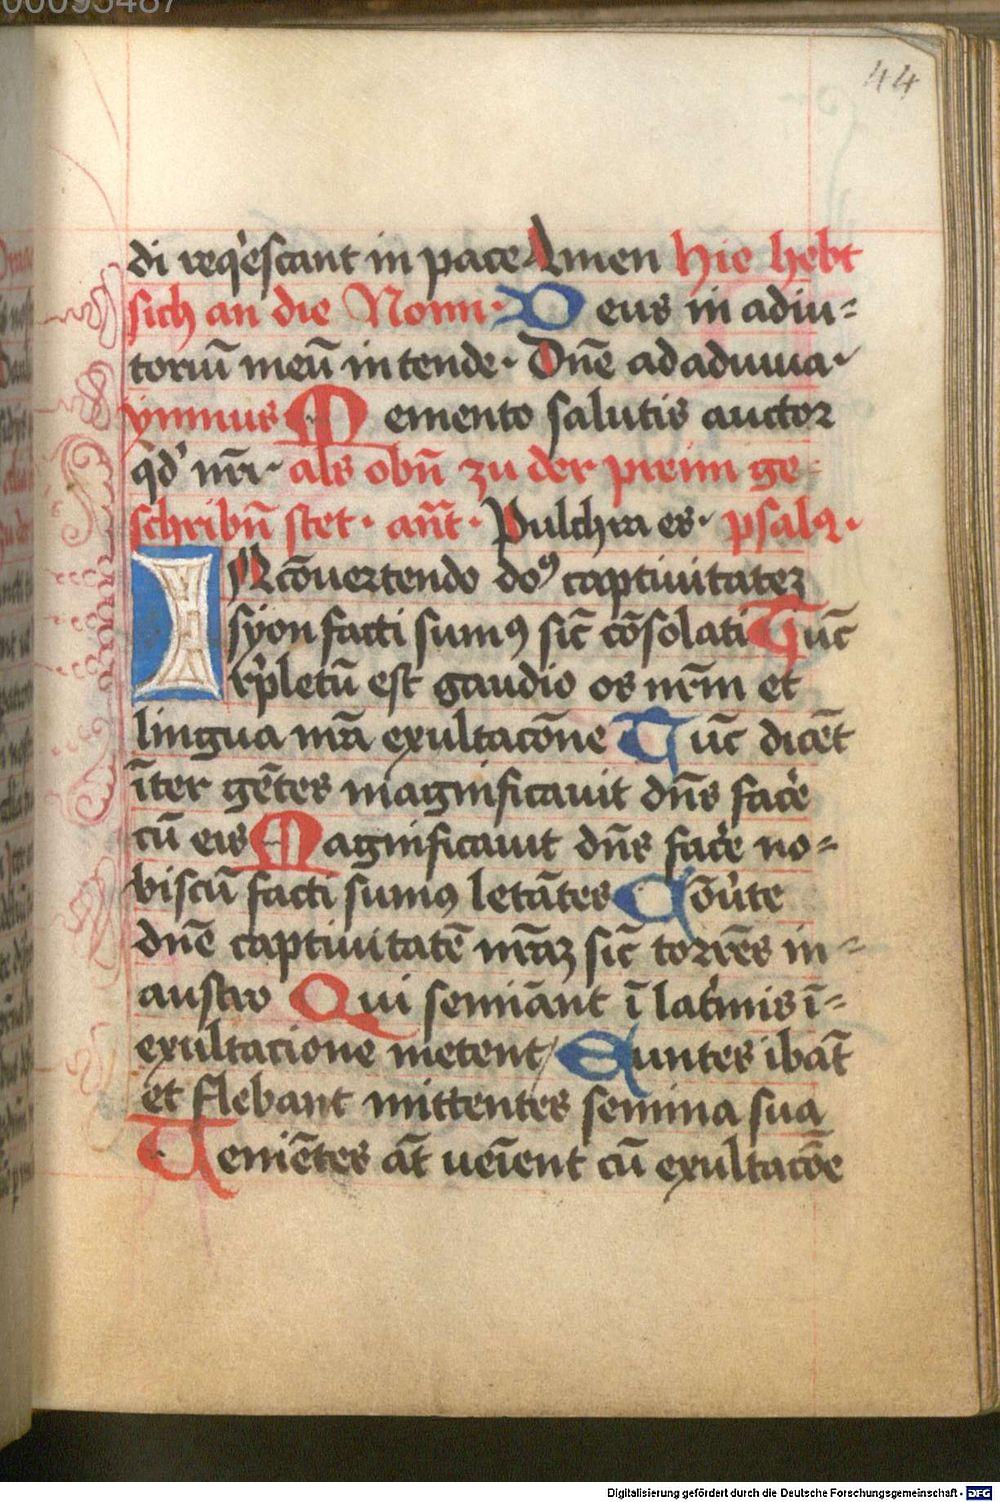 00095487
44
di req̓escant in pace Amen Hie hebt
sich an die Nonn · Deus in adiu-
toriū meū in tende · Dn̄e ad adiuua ·
ymnus Memento salutis auctor
q̄d' nr̄i · als obn̄ zu der preim ge-
schribn̄ stet · an̄t · Pulchra es · psalꝫ ·
IN cōuertendo doꝰ captiuitateꝫ
syon facti sumꝰ sic̄ cōsolati Tūc
rp̓letū est gaudio os nr̄m et
lingua nr̄a exultacōne Tūc dicēt
īter gētes magnificauit dn̄s fac̓e
cū eis Magnificauit dn̄s fac̓e no-
biscū facti sumꝰ letātes Cōu̓te
dn̄e captiuitatē nr̄aꝫ sic̄ torrēs in-
austro Qui semiānt ī lac̓mis ī-
exultacione metent Euntes ibāt
et flebant mittentes semina sua
Ueniētes āt ueīent cū exultacōe
Digitalisierung gefördert durch die Deutsche Forschungsgemeinschaft - DFG